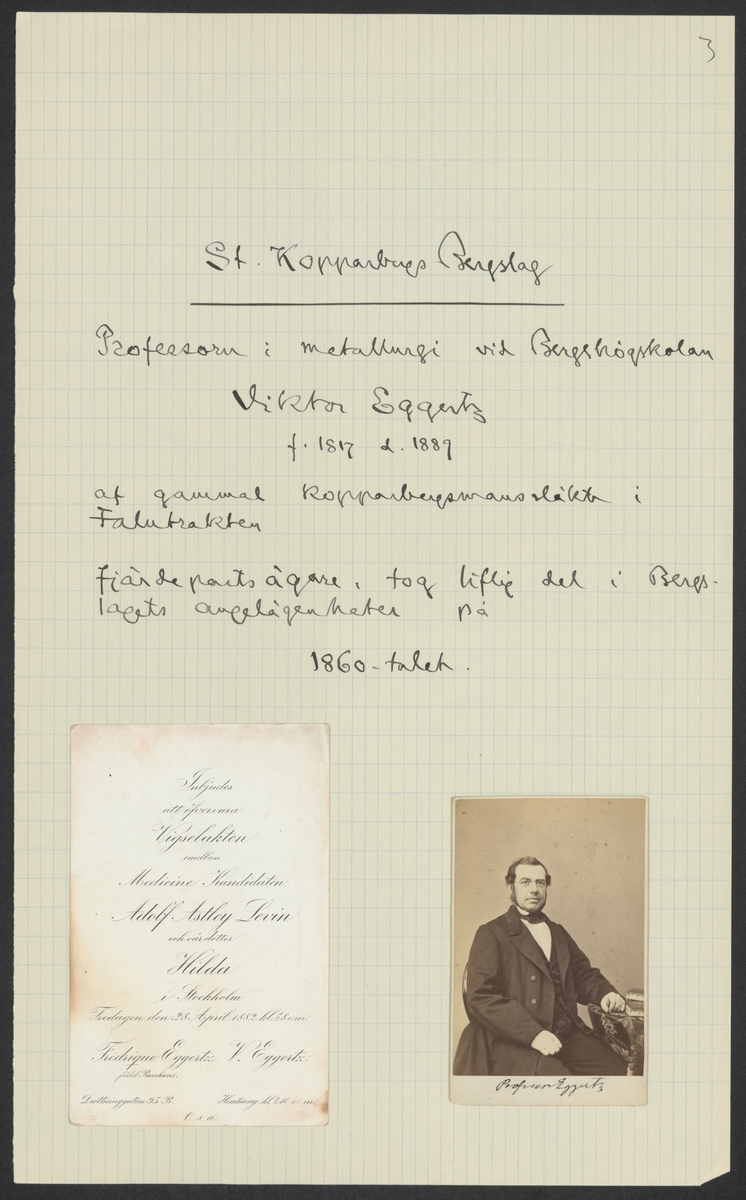 3
St. Kopparbergs Bergslag
Professorn i metallurgi vid Bergshögskolan
Viktor Eggertz
f. 1817 d. 1889
af gammal kopparbergsmanssläkt i
Falutrakten
Fjärdepartsägare, tog liflig del i Bergs-
lagets angelägenheter på
1860-talet.
Inbjudes
att öfvervara
Vigselakten
emellan
Medicine Kandidaten
Adolf Astley Levin
och vår dotter
Hilda
i Stockholm
Fredagen den 28 April 1882 kl.
Fredrique Eggertz, V. Eggertz.
född
Drottninggatan 95 B. Hemtning kl.
O. s. a.
Professor Eggertz